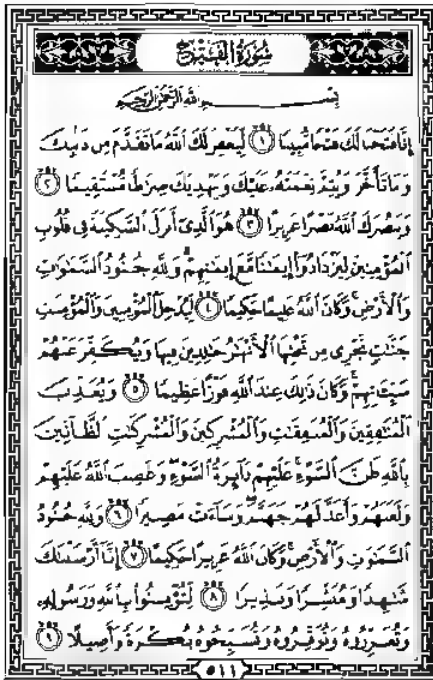 سُورَةُ الفَتْحِ
بِسْمِ اللَّهِ الرَّحْمَٰنِ الرَّحِيمِ
إِنَّا فَتَحْنَا لَكَ فَتْحًا مُّبِينًا ١ لِّيَغْفِرَ لَكَ اللَّهُ مَا تَقَدَّمَ مِن ذَنۢبِكَ
وَمَا تَأَخَّرَ وَيُتِمَّ نِعْمَتَهُۥ عَلَيْكَ وَيَهْدِيَكَ صِرَٰطًا مُّسْتَقِيمًا ٢
وَيَنصُرَكَ اللَّهُ نَصْرًا عَزِيزًا ٣ هُوَ الَّذِىٓ أَنزَلَ السَّكِينَةَ فِى قُلُوبِ
الْمُؤْمِنِينَ لِيَزْدَادُوٓا إِيمَٰنًا مَّعَ إِيمَٰنِهِمْ ۗ وَلِلَّهِ جُنُودُ السَّمَٰوَٰتِ
وَالْأَرْضِ ۚ وَكَانَ اللَّهُ عَلِيمًا حَكِيمًا ٤ لِّيُدْخِلَ الْمُؤْمِنِينَ وَالْمُؤْمِنَٰتِ
جَنَّٰتٍ تَجْرِى مِن تَحْتِهَا الْأَنْهَٰرُ خَٰلِدِينَ فِيهَا وَيُكَفِّرَ عَنْهُمْ
سَيِّـَٔاتِهِمْ ۚ وَكَانَ ذَٰلِكَ عِندَ اللَّهِ فَوْزًا عَظِيمًا ٥ وَيُعَذِّبَ
الْمُنَٰفِقِينَ وَالْمُنَٰفِقَٰتِ وَالْمُشْرِكِينَ وَالْمُشْرِكَٰتِ الظَّآنِّينَ
بِاللَّهِ ظَنَّ السَّوْءِ ۚ عَلَيْهِمْ دَآئِرَةُ السَّوْءِ ۖ وَغَضِبَ اللَّهُ عَلَيْهِمْ
وَلَعَنَهُمْ وَأَعَدَّ لَهُمْ جَهَنَّمَ ۖ وَسَآءَتْ مَصِيرًا ٦ وَلِلَّهِ جُنُودُ
السَّمَٰوَٰتِ وَالْأَرْضِ ۚ وَكَانَ اللَّهُ عَزِيزًا حَكِيمًا ٧ إِنَّآ أَرْسَلْنَٰكَ
شَٰهِدًا وَمُبَشِّرًا وَنَذِيرًا ٨ لِّتُؤْمِنُوا بِاللَّهِ وَرَسُولِهِۦ
وَتُعَزِّرُوهُ وَتُوَقِّرُوهُ وَتُسَبِّحُوهُ بُكْرَةً وَأَصِيلًا ٩
٥١١